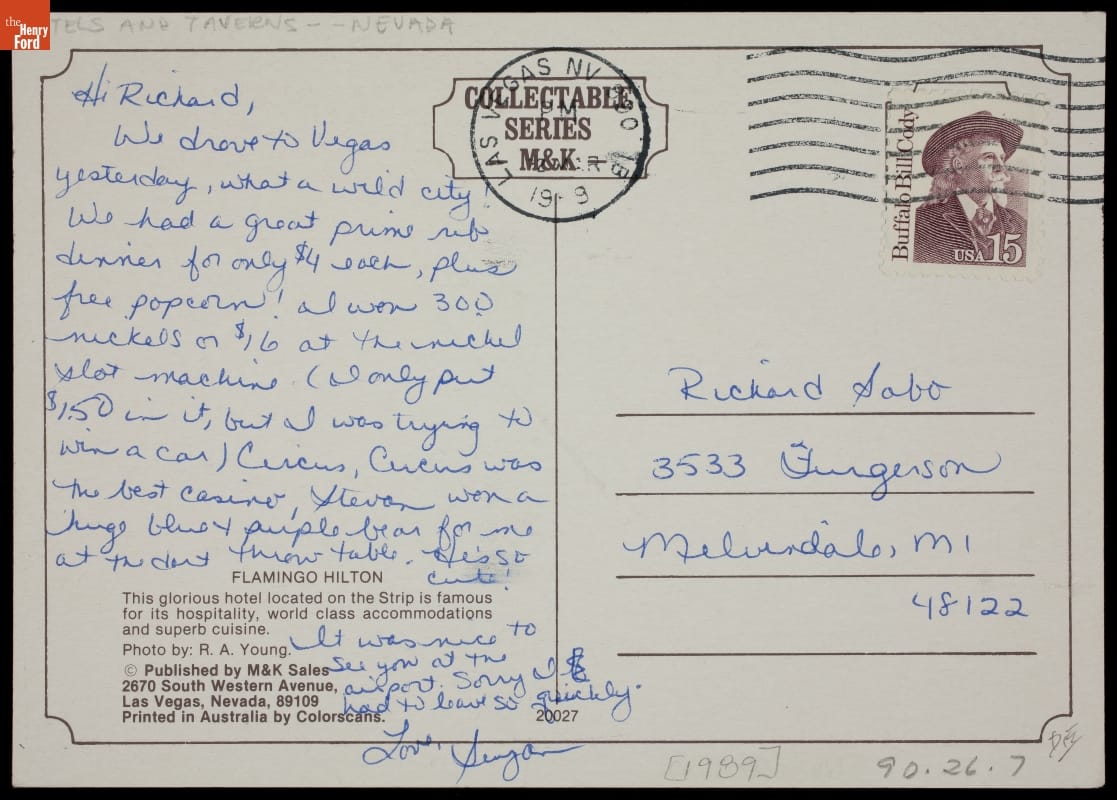 the
Henry
Ford
TELS AND TAVERNS - - NEVADA
Hi Richard,
We drove to Vegas
yesterday, what a wild city!
We had a great prime rib
dinner for only $4 each, plus
free popcorn! I won 300
nickels or $16 at the nickel
slot machine. (I only put
$1.50 in it, but I was trying to
win a car) Circus, Circus was
the best casino, Stevan won a
huge blue & purple bear for me
at the dart throw table. He's so
cute!
It was nice to
see you at the
airport. Sorry I
had to leave so quickly.
Love,
FLAMINGO HILTON
This glorious hotel located on the Strip is famous
for its hospitality, world class accommodations
and superb cuisine.
Photo by: R. A. Young.
© Published by M&K Sales
2670 South Western Avenue,
Las Vegas, Nevada, 89109
Printed in Australia by Colorscans.
20027
COLLECTABLE
SERIES
M&K
LAS VEGAS NV
PM
Buffalo Bill Cody
USA 15
Richard Sabo
3533 Furgerson
Melvindale, MI
48122
[1989]
90.26.7